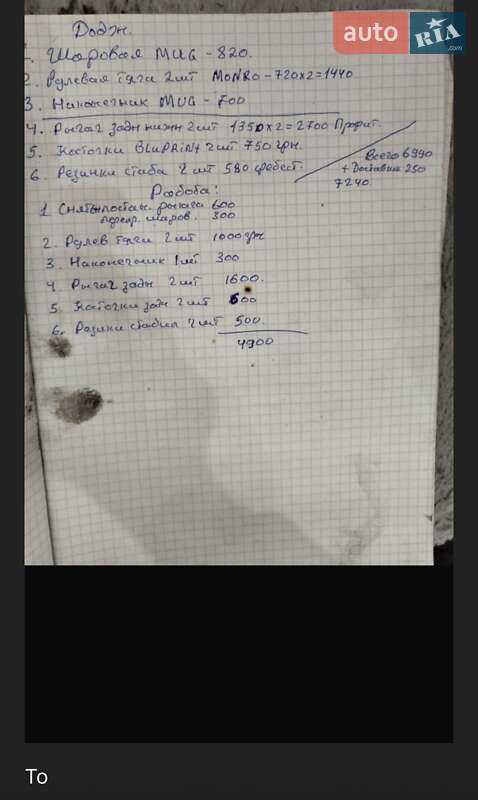 auto RIA .com
Додж.
1. Шаровая MUG - 820.
2. Рулевая тяга 2шт MONRO - 720x2=1440
3. Наконечник MUG - 700
4. Рычаг задн нижн 2шт 1350x2=2700 Профит.
5. Косточки BLUPRiNt 2шт 750 грн.
6. Резинки стаба 2 шт 580 фебест.
Всего 6990
+ Доставка 250
7240
Работа:
1. рычага 600
шаров. 300
2. Рулев тяги 2шт 1000 грн
3. Наконечник 1шт 300
4. Рычаг задн 2шт 1600.
5. Косточки задн 2шт 600
6. Резинки стабил 2шт 500.
4900
To